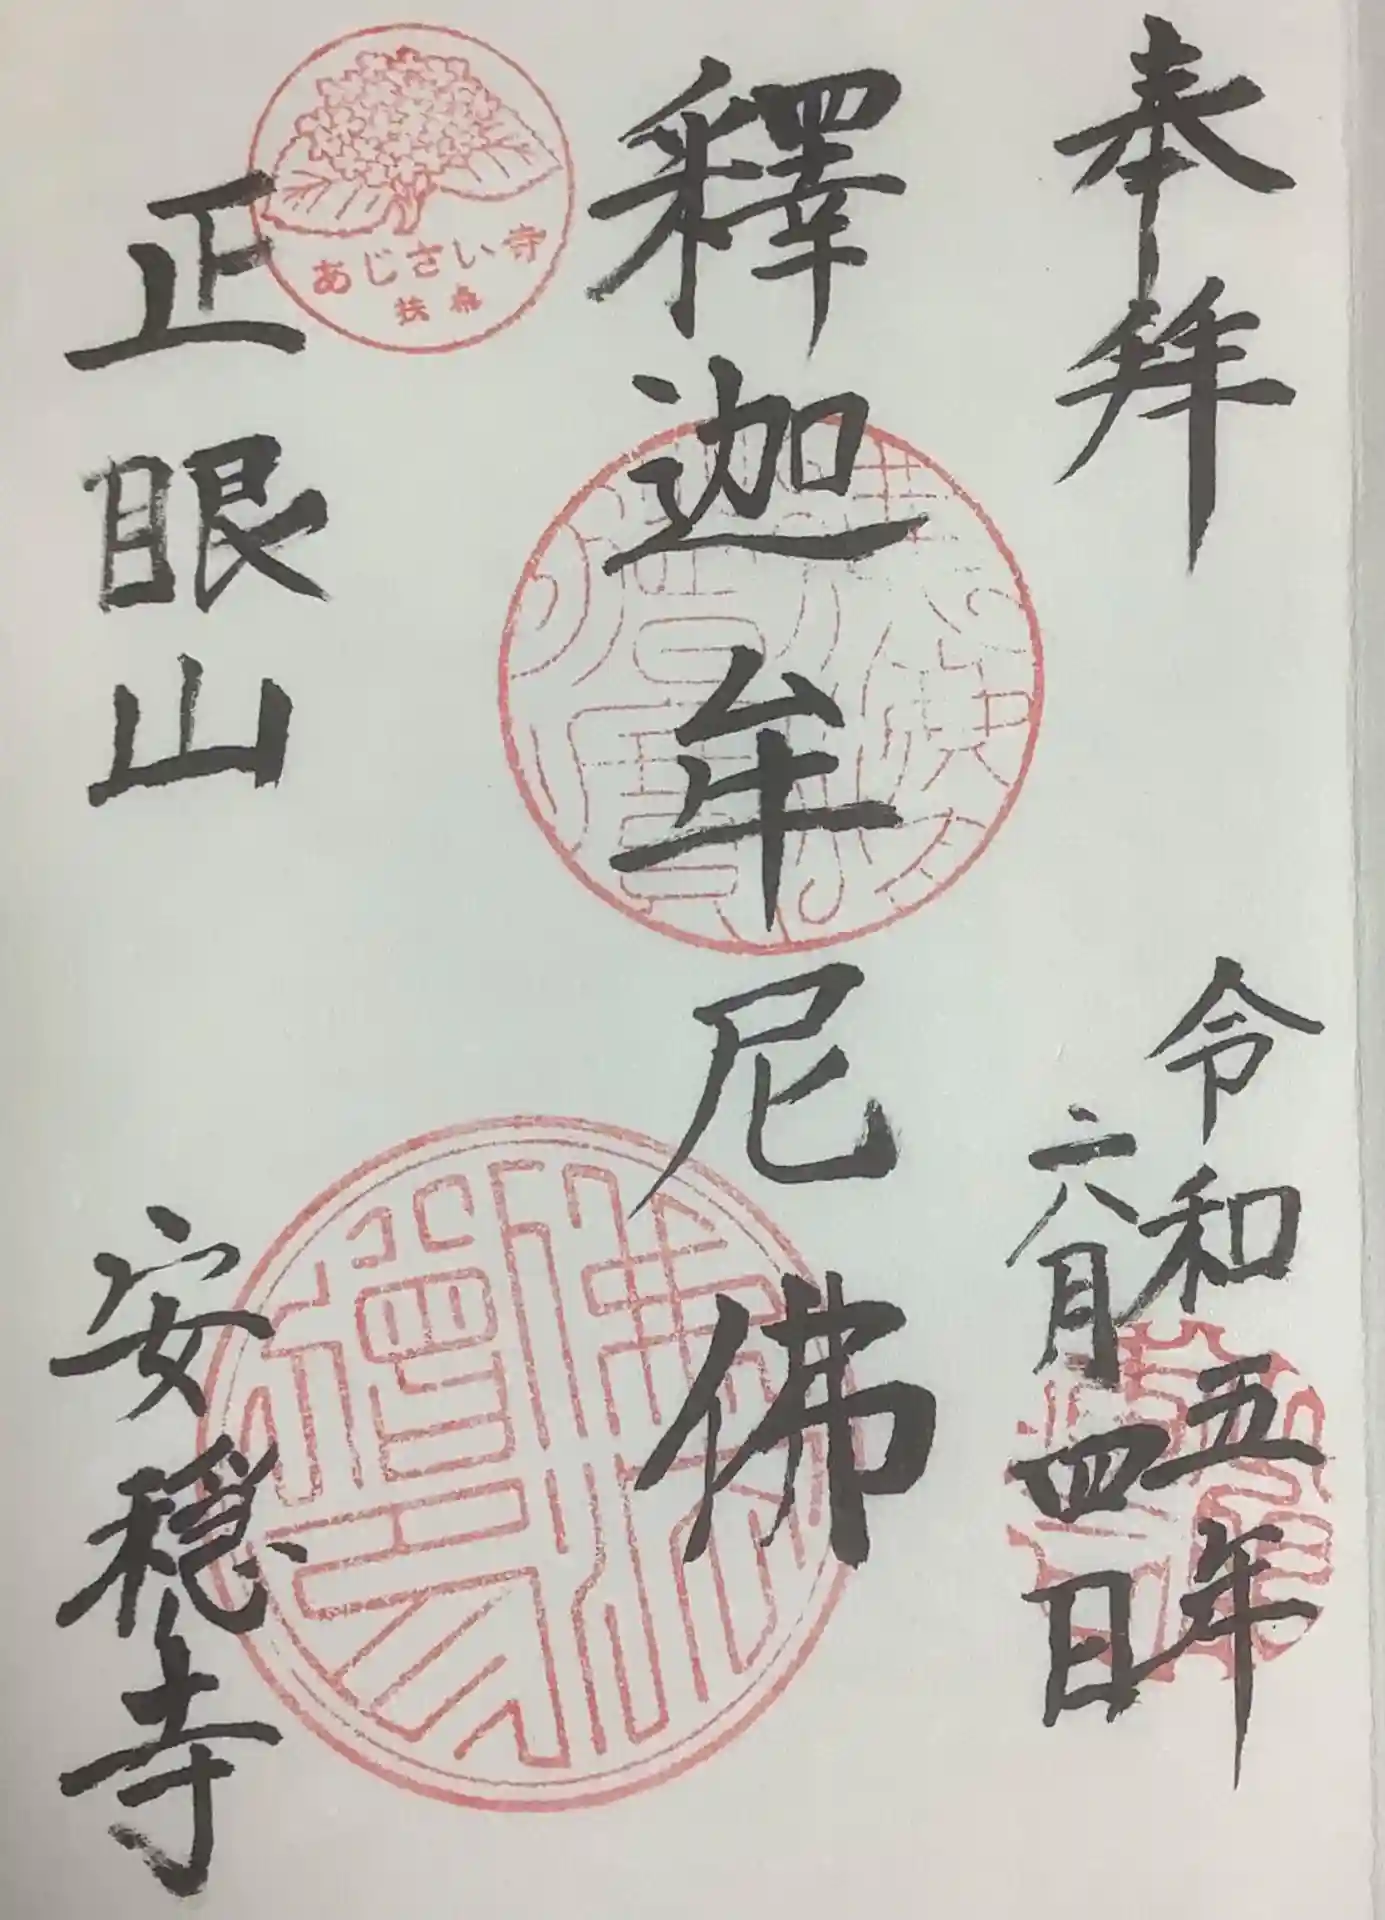 奉拜
令和五年
六月四日
釋迦牟尼佛
あじさい寺
扶桑
正眼山
安穏寺